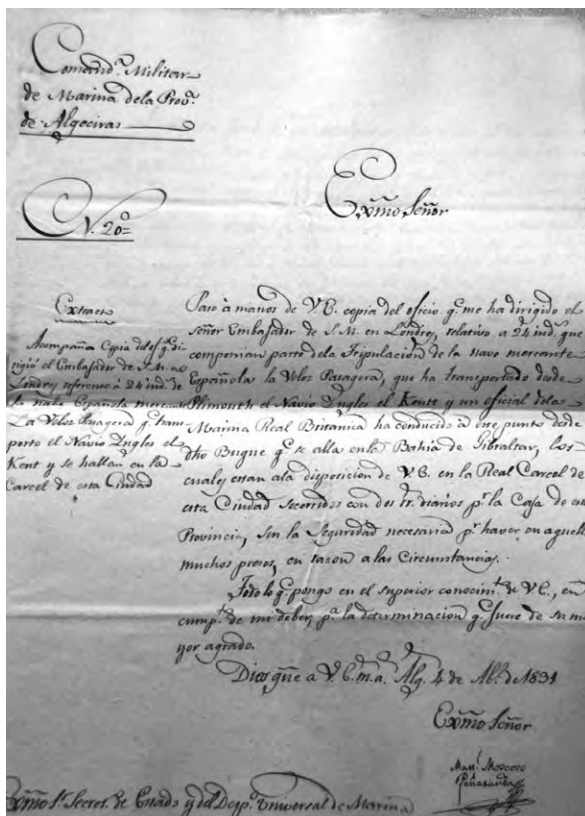 Comand.ª Militar
de Marina dela Prov.ª
de Algeciras
N. 20=
Exmo Señor
Extracto
Acompaña Copia del of.º q.e di-
rigió el Embajador de S. M. en
Londres referente à 24 ind.s de
la nave Española mercante
La Veloz Pasagera q.e trans-
portó el Navio Ingles el
Kent y se hallan en la
Carcel de esta Ciudad
Paso à manos de V. E. copia del oficio q.e me ha dirigido el
Señor Embajador de S. M. en Londres, relativo a 24 ind.s que
componian parte dela Tripulacion de la nave mercante
Española la Veloz Pasagera, que ha transportado desde
Plimouth el Navio Ingles el Kentt y un oficial dela
Marina Real Britanica ha conducido à ese punto desde
dho Buque q.e se alla enla Bahia de Gibraltar, los
cuales estan ala disposicion de V. E. en la Real Carcel de
esta Ciudad socorridos con dos r.s diarios p.r la Caja de esta
Provincia, sin la Seguridad necesaria p.r haver en aquella
muchos presos, en razon a las Circunstancias.
Todo lo q.e pongo en el superior conocim.to de V. E., en
cump.to de mi deber, p.a la determinacion q.e fuere de su ma
yor agrado.
Dios gũe a V. E. m. a. Alg. 4 de Ab.l de 1831
Exmo Señor
Man.l Moscoso
Peñaranda
Exmo S.r Secret.º de Estado y del Desp.º Universal de Marina